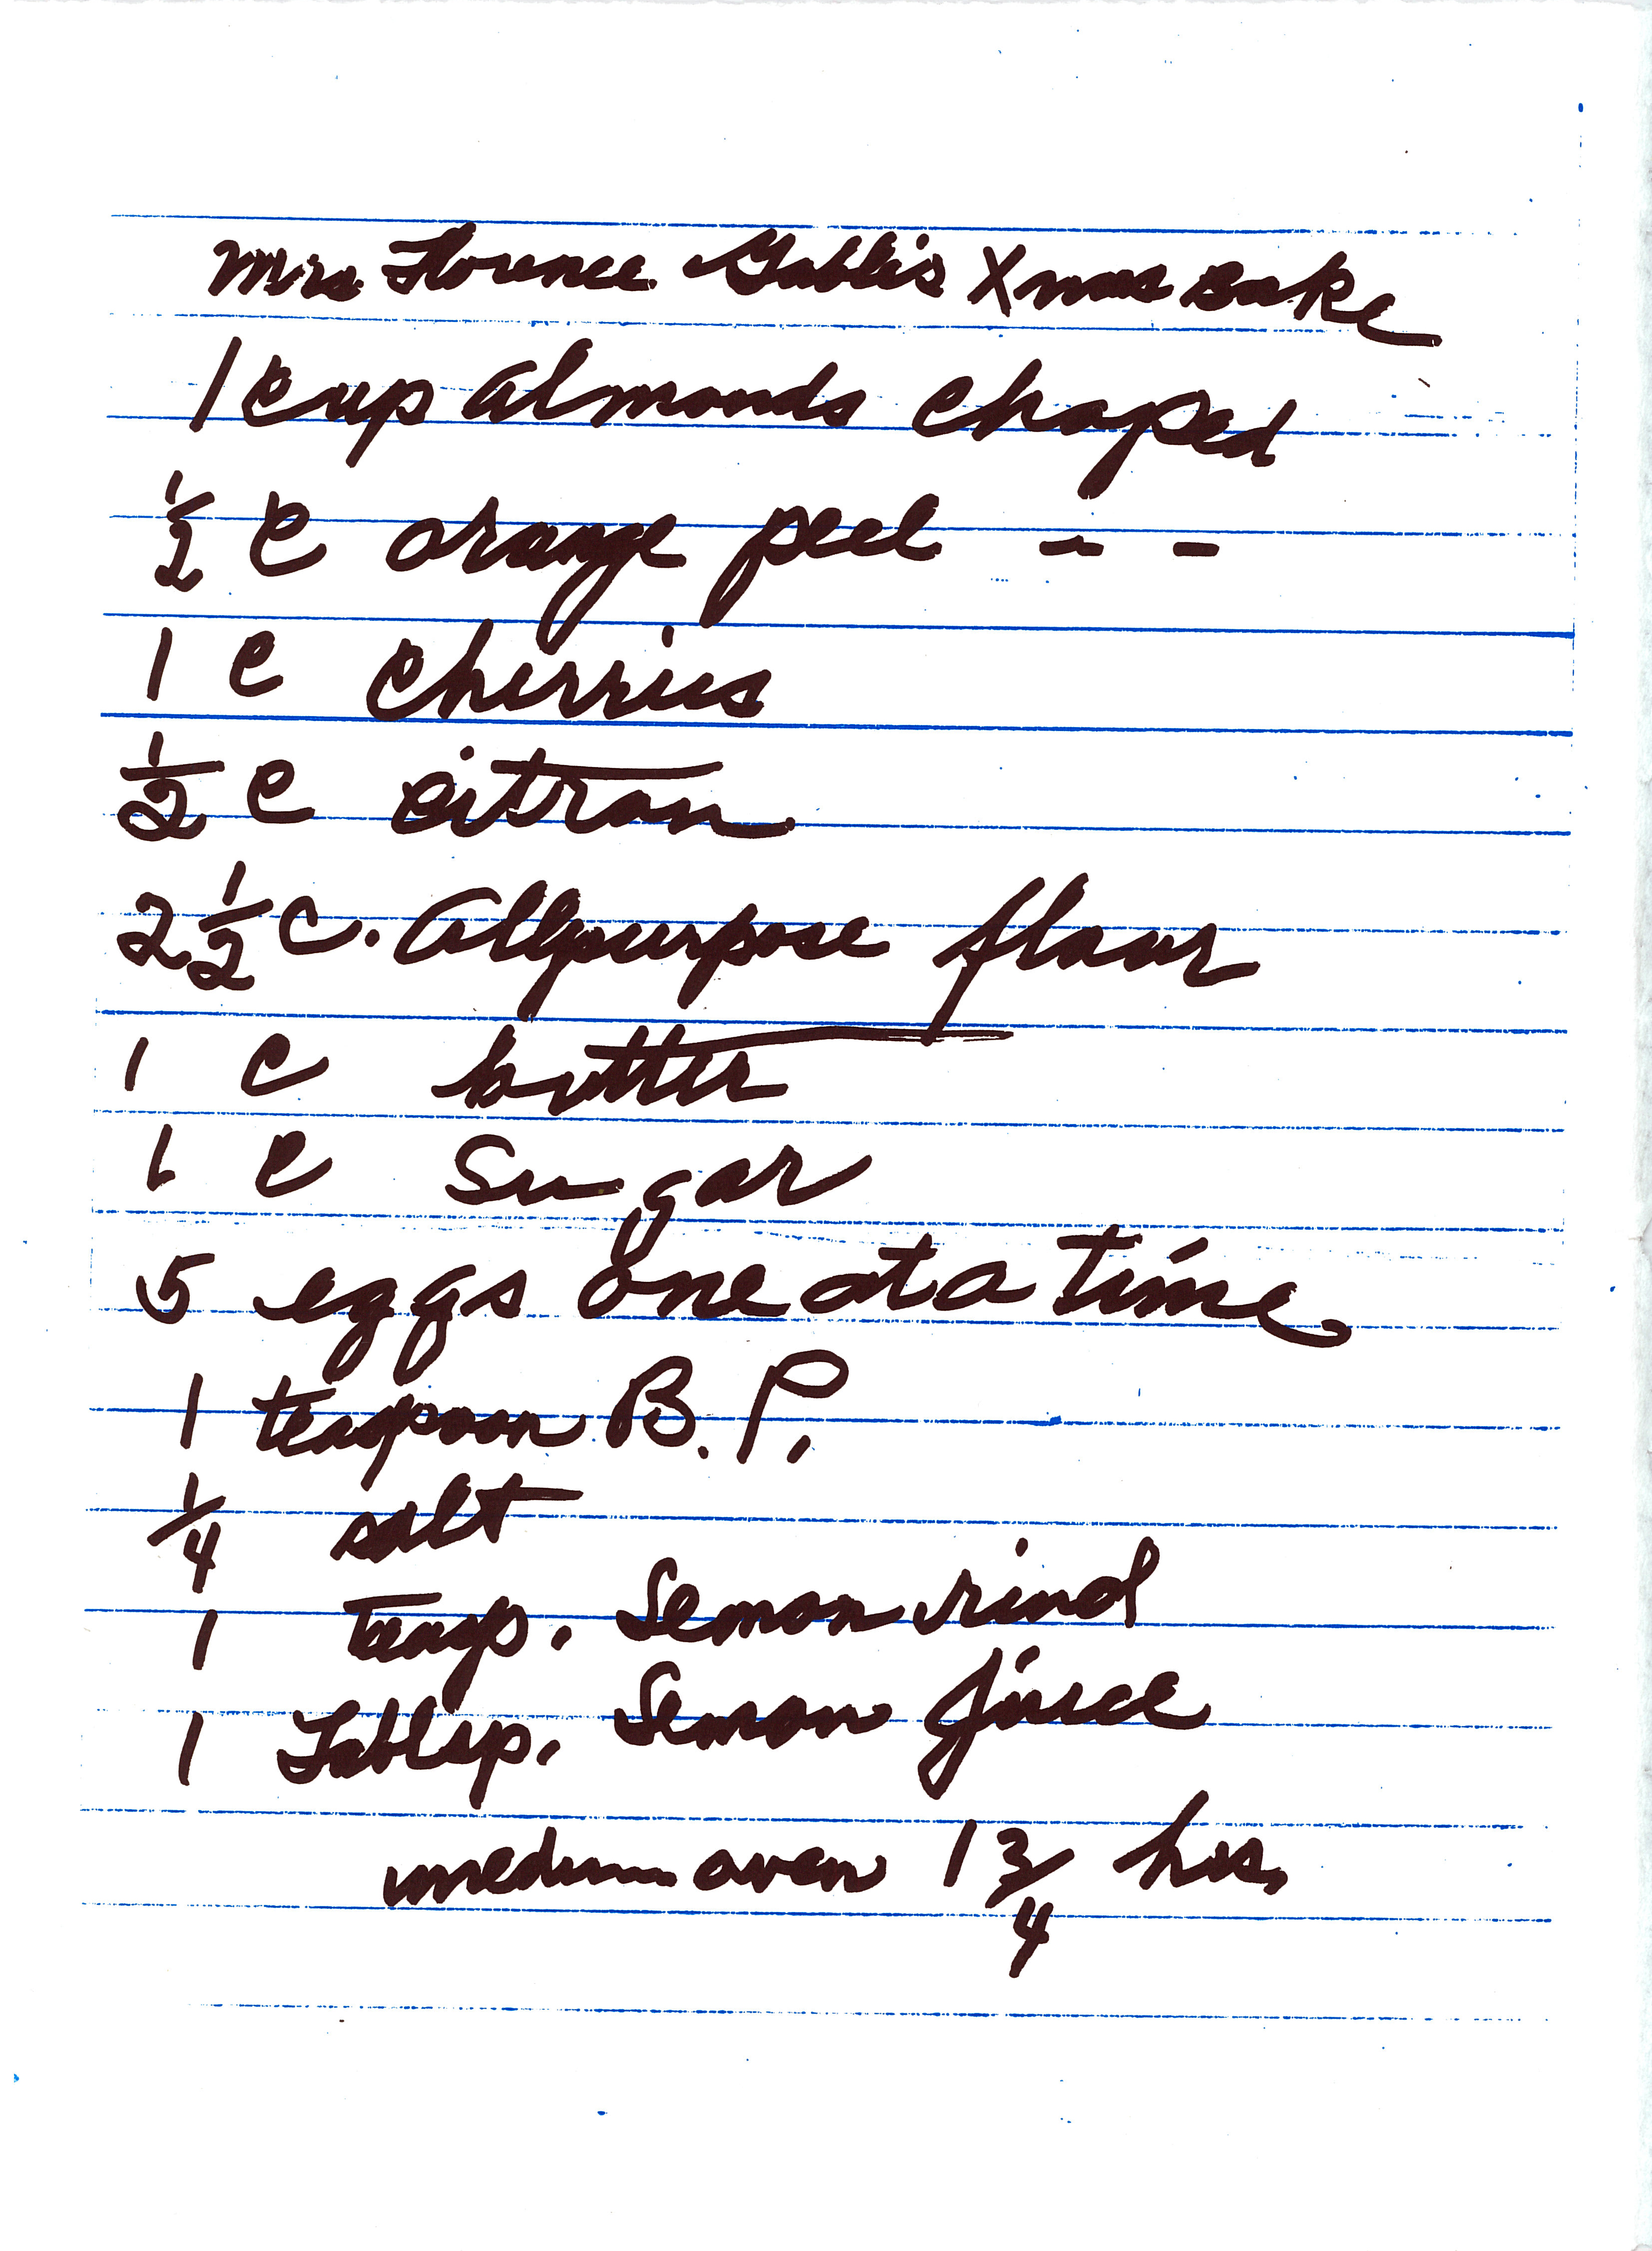 Mrs. Florence Gable's Xmas Bake
1 cup almonds chaped
1/2 c orange peel - -
1 c cherries
1/2 c citron
2 1/2 c. Allpurpose flour
1 c butter
1 c Sugar
5 eggs one at a time
1 teaspoon B.P.
1/4 salt
1 Teasp. Lemon rind
1 Tablsp. Lemon juice
medium oven 1 3/4 hrs.